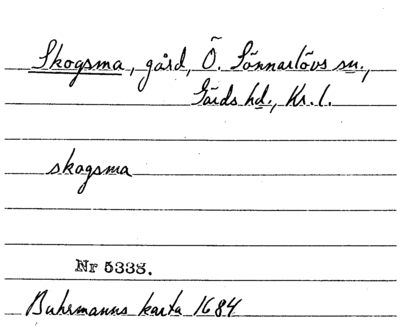 Skogsma, gård, Ö. Sönnarlövs sn.,
Gärds hd., Kr. l.
skogsma
Nr 5338.
Buhrmanns karta 1684